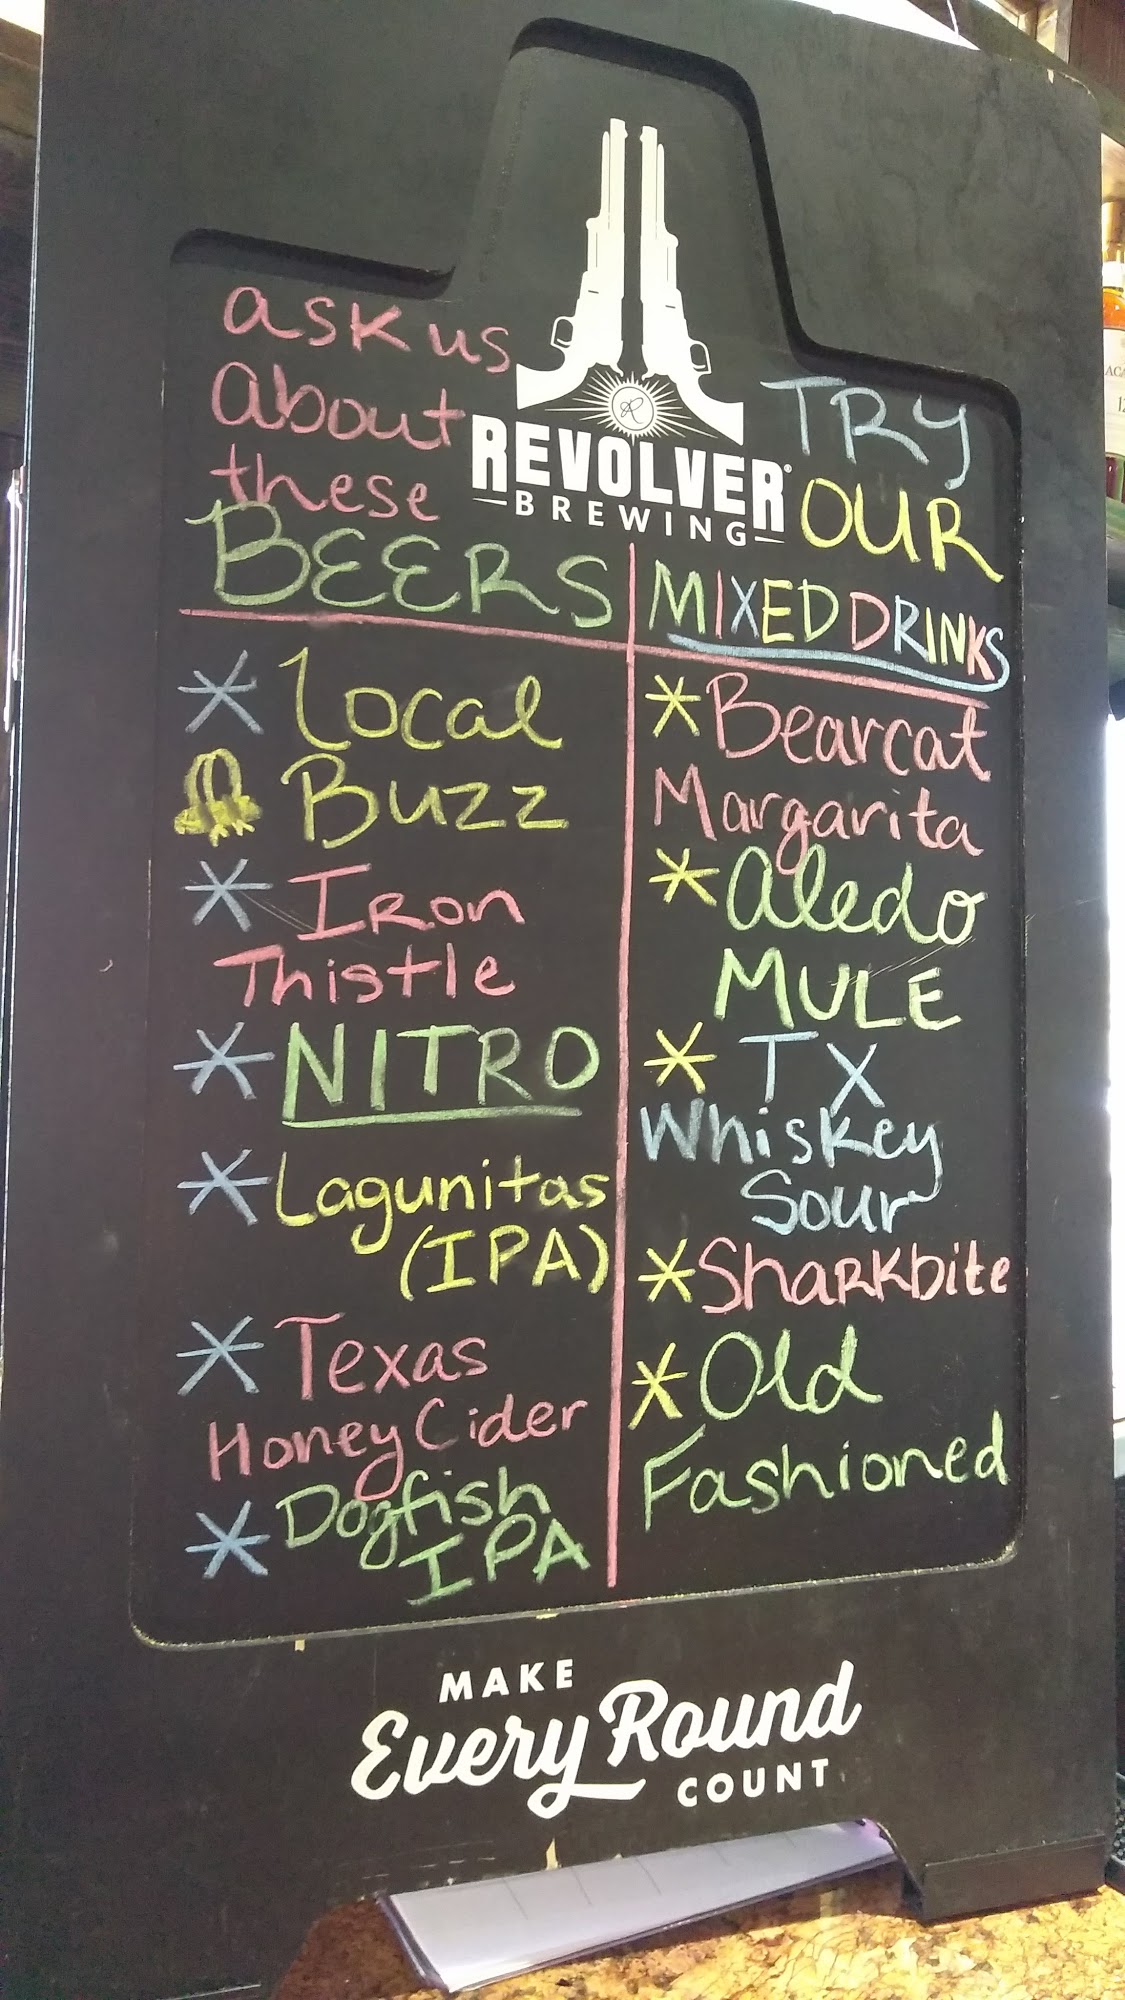 ask us
about
these
BEERS
REVOLVER
BREWING
TRY
OUR
MIXED DRINKS
* Local
Buzz
* Iron
Thistle
* NITRO
* Lagunitas
(IPA)
* Texas
Honey Cider
* Dogfish
IPA
* Bearcat
Margarita
* Aledo
MULE
* TX
Whiskey
Sour
* Sharkbite
* Old
Fashioned
MAKE
Every Round
COUNT